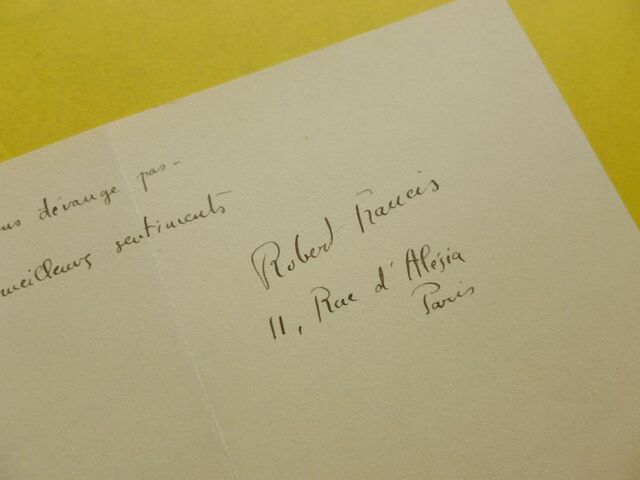 ous dérange pas -
meilleurs sentiments
Robert Francis
11, Rue d'Alésia
Paris